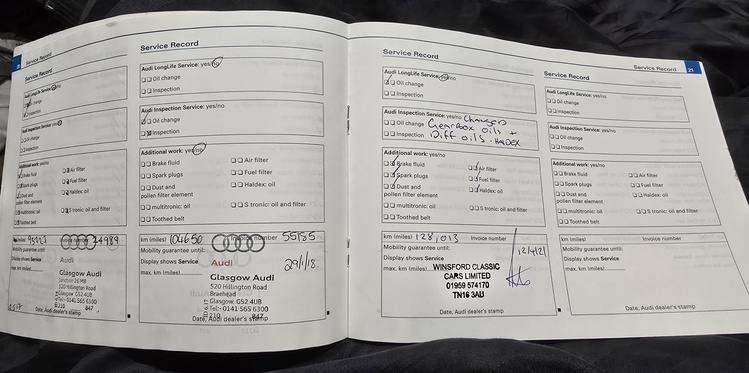 20
Service Record
Audi LongLife Service: yes/no
Oil change
Inspection
Audi Inspection Service: yes/no
Oil change
Inspection
Additional work: yes/no
Brake fluid
Air filter
Spark plugs
Fuel filter
Dust and
pollen filter element
Haldex: oil
multitronic: oil
S tronic: oil and filter
Toothed belt
km (miles)
Invoice number
Mobility guarantee until:
Display shows Service
max. km (miles)
Audi
Glasgow Audi
520 Hillington Road
Glasgow G52 4UB
Tel:- 0141 565 6300
210 847
Date, Audi dealer's stamp
Service Record
Audi LongLife Service: yes/no
Oil change
Inspection
Audi Inspection Service: yes/no
Oil change
Inspection
Additional work: yes/no
Brake fluid
Air filter
Spark plugs
Fuel filter
Dust and
pollen filter element
Haldex: oil
multitronic: oil
S tronic: oil and filter
Toothed belt
km (miles) 104650 Invoice number 55185
Mobility guarantee until:
Display shows Service
max. km (miles)
Audi
29/1/18.
Glasgow Audi
520 Hillington Road
Braehead
Glasgow G52 4UB
Tel:- 0141 565 6300
210 847
Date, Audi dealer's stamp
Service Record
Audi LongLife Service: yes/no
Oil change
Inspection
Audi Inspection Service: yes/no Changed
Oil change Gearbox oils +
Inspection Diff oils. HALDEX
Additional work: yes/no
Brake fluid
Air filter
Spark plugs
Fuel filter
Dust and
pollen filter element
Haldex: oil
multitronic: oil
S tronic: oil and filter
Toothed belt
km (miles) 128,013 Invoice number
Mobility guarantee until: 12/4/21
Display shows Service
max. km (miles)
WINSFORD CLASSIC
CARS LIMITED
01959 574170
TN16 3AU
Date, Audi dealer's stamp
Service Record 21
Audi LongLife Service: yes/no
Oil change
Inspection
Audi Inspection Service: yes/no
Oil change
Inspection
Additional work: yes/no
Brake fluid
Air filter
Spark plugs
Fuel filter
Dust and
pollen filter element
Haldex: oil
multitronic: oil
S tronic: oil and filter
Toothed belt
km (miles)
Invoice number
Mobility guarantee until:
Display shows Service
max. km (miles)
Date, Audi dealer's stamp